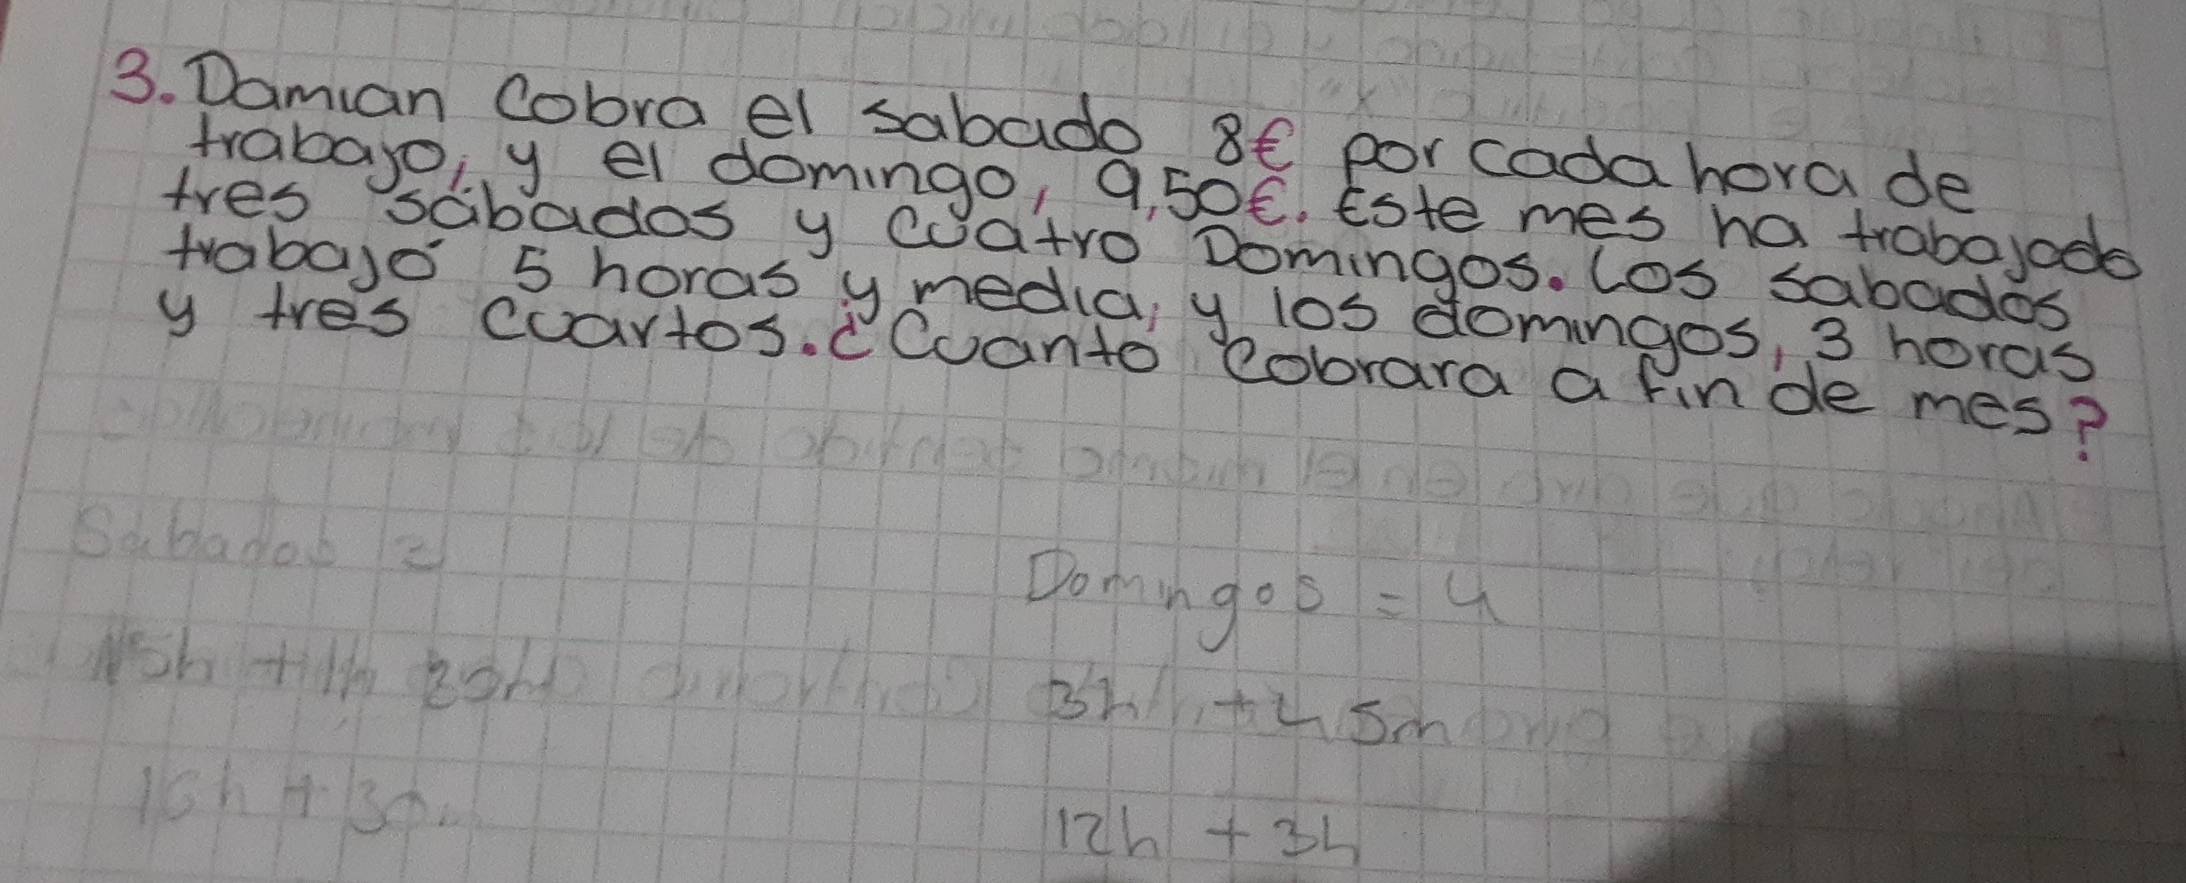 3. Damian Cobra el sabado 8€ por cada hora de
trabajo, y el domingo, 9,50€. Este mes ha trabajado
tres sábados y cuatro Domingos. Los sabados
trabajó 5 horas y media, y los domingos, 3 horas
y tres cuartos. ¿Cuanto Cobrara a fin de mes?
Sabados =
Domingos = 4
5h +
3h + 45m
15h + 30
12h + 3h